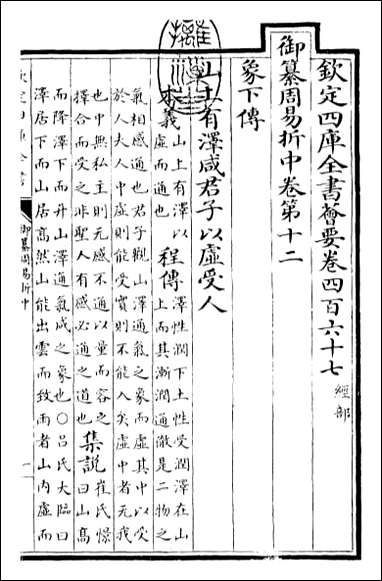 欽定四庫全書薈要卷四百六十七 經部
御纂周易折中卷第十二
象下傳
山上有澤咸君子以虛受人
本義
山上有澤以
虛而通也
程傳
澤性潤下土性受潤澤在山
上而其漸潤通徹是二物之
氣相感通也君子觀山澤通氣之象而虛其中以受
於人夫人中虛則能受實則不能入矣虛中者无我
也中無私主則无感不通以量而容之
擇合而受之非聖人有感必通之道也
集說
崔氏憬
曰山高
而降澤下而升山澤通氣咸之象也○呂氏大臨曰
澤居下而山居高然山能出雲而致雨者山內虛而
欽定四庫全書
御纂周易折中
一